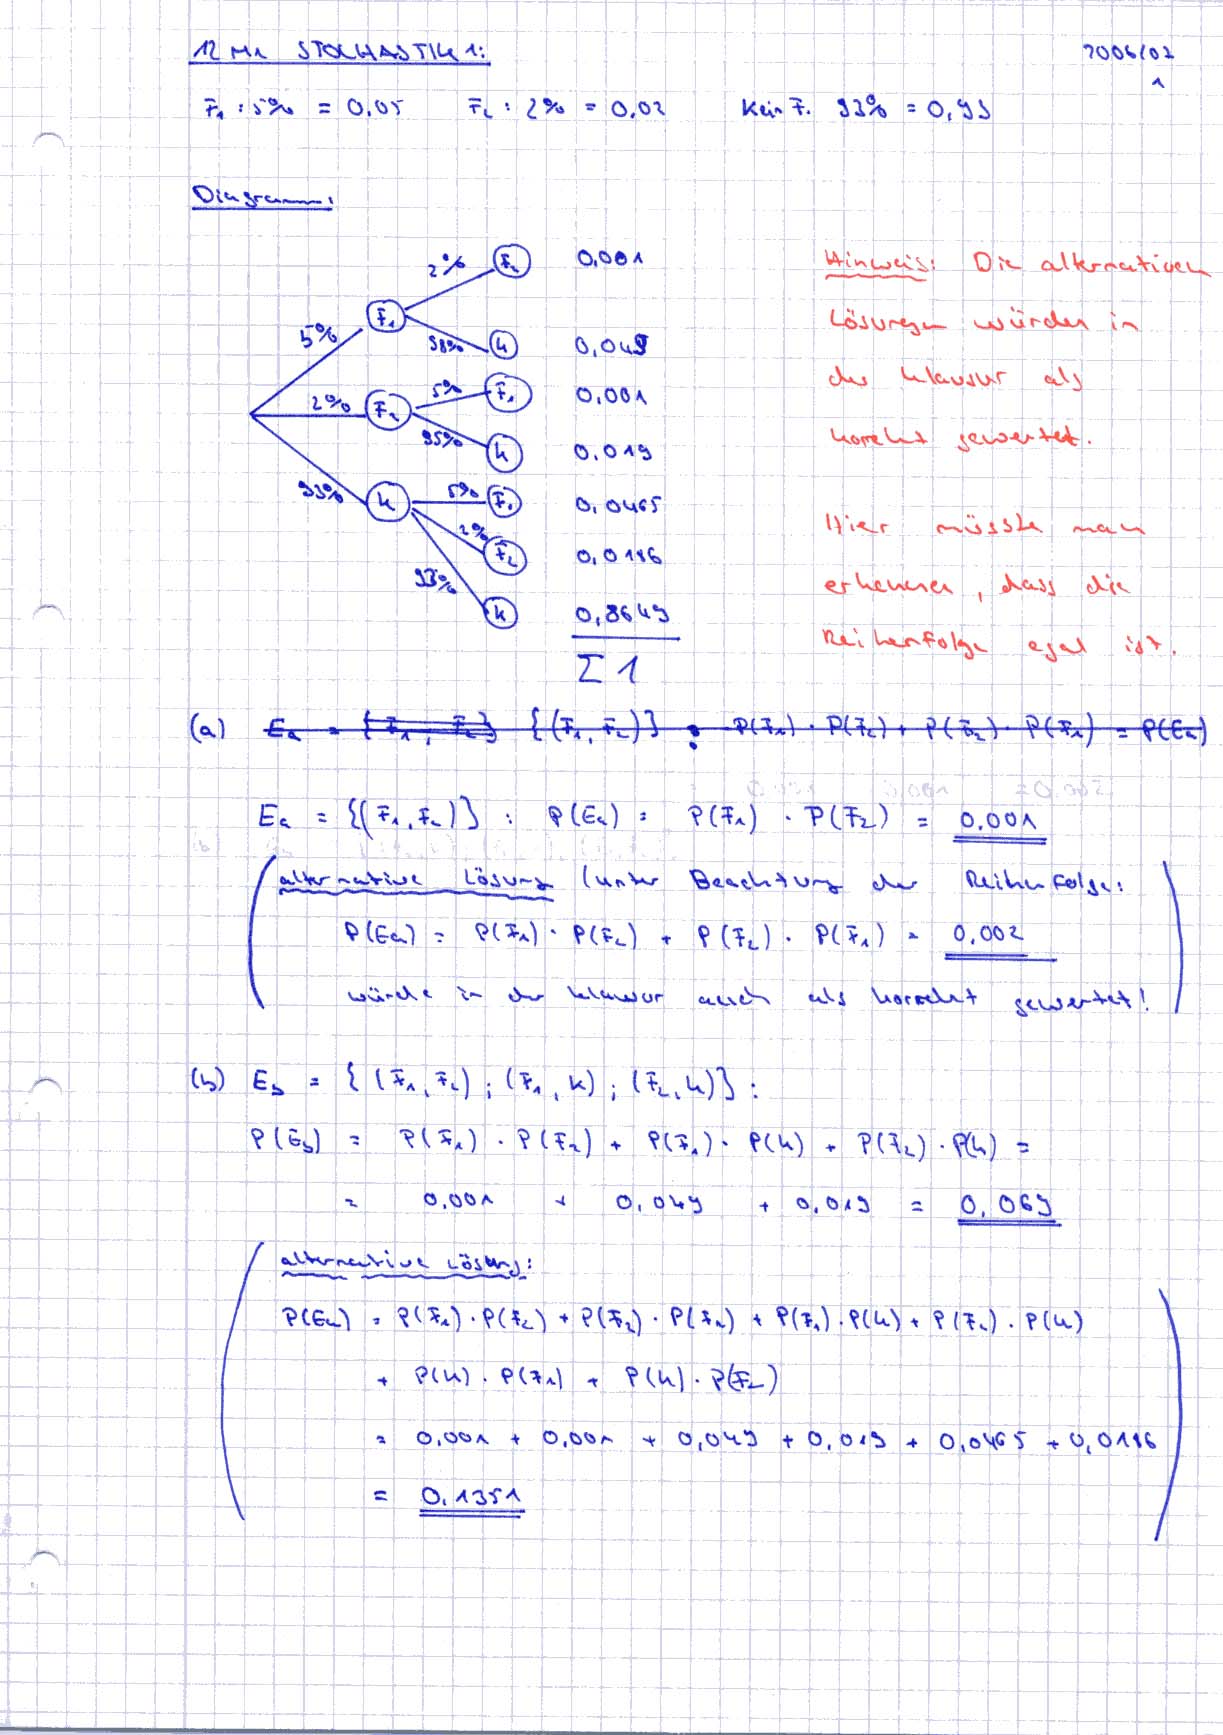 12 M1 STOCHASTIK 1:
2006/02
1
F₁ : 5% = 0,05 F₂ : 2% = 0,02 Kein F. 93% = 0,93
Diagramm:
2% F₂ 0,001
5% F₁
98% k 0,049
2% F₂ 5% F₁ 0,001
95% k 0,019
93% k 5% F₁ 0,0465
2% F₂ 0,0186
93% k 0,8649
Σ 1
Hinweis: Die alternativen
Lösungen würden in
der Klausur als
korrekt gewertet.
Hier müsste man
erkennen, dass die
Reihenfolge egal ist.
(a) Eₐ = {F₁, F₂} {(F₁, F₂)} : P(F₁) · P(F₂) + P(F₂) · P(F₁) = P(Eₐ)
Eₐ = {(F₁, F₂)} : P(Eₐ) = P(F₁) · P(F₂) = 0,001
alternative Lösung (unter Beachtung der Reihenfolge:
P(Eₐ) = P(F₁) · P(F₂) + P(F₂) · P(F₁) = 0,002
würde in der Klausur auch als korrekt gewertet!
(b) E_b = {(F₁, F₂) ; (F₁, k) ; (F₂, k)} :
P(E_b) = P(F₁) · P(F₂) + P(F₁) · P(k) + P(F₂) · P(k) =
= 0,001 + 0,049 + 0,019 = 0,069
alternative Lösung:
P(E_b) = P(F₁) · P(F₂) + P(F₂) · P(F₁) + P(F₁) · P(k) + P(F₂) · P(k)
+ P(k) · P(F₁) + P(k) · P(F₂)
= 0,001 + 0,001 + 0,049 + 0,019 + 0,0465 + 0,0186
= 0,1351